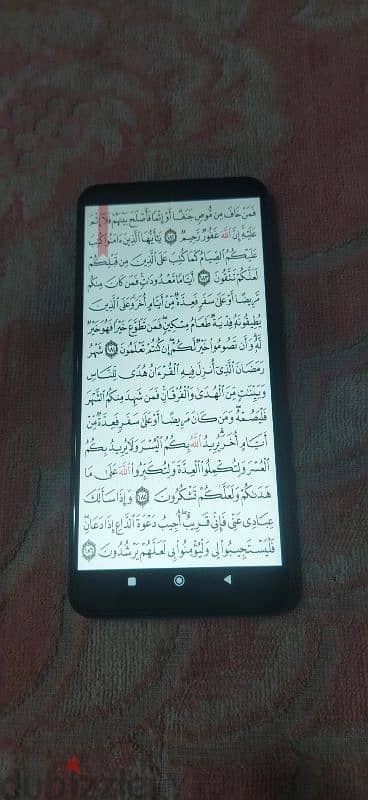 فَمَنْ خَافَ مِن مُّوصٍ جَنَفًا أَوْ إِثْمًا فَأَصْلَحَ بَيْنَهُمْ فَلَآ إِثْمَ
عَلَيْهِ إِنَّ ٱللَّهَ غَفُورٌ رَّحِيمٌ ١٨٢ يَٰٓأَيُّهَا ٱلَّذِينَ ءَامَنُوا۟ كُتِبَ
عَلَيْكُمُ ٱلصِّيَامُ كَمَا كُتِبَ عَلَى ٱلَّذِينَ مِن قَبْلِكُمْ
لَعَلَّكُمْ تَتَّقُونَ ١٨٣ أَيَّامًا مَّعْدُودَٰتٍ فَمَن كَانَ مِنكُم
مَّرِيضًا أَوْ عَلَىٰ سَفَرٍ فَعِدَّةٌ مِّنْ أَيَّامٍ أُخَرَ وَعَلَى ٱلَّذِينَ
يُطِيقُونَهُۥ فِدْيَةٌ طَعَامُ مِسْكِينٍ فَمَن تَطَوَّعَ خَيْرًا فَهُوَ خَيْرٌ
لَّهُۥ وَأَن تَصُومُوا۟ خَيْرٌ لَّكُمْ إِن كُنتُمْ تَعْلَمُونَ ١٨٤ شَهْرُ
رَمَضَانَ ٱلَّذِىٓ أُنزِلَ فِيهِ ٱلْقُرْءَانُ هُدًى لِّلنَّاسِ
وَبَيِّنَٰتٍ مِّنَ ٱلْهُدَىٰ وَٱلْفُرْقَانِ فَمَن شَهِدَ مِنكُمُ ٱلشَّهْرَ
فَلْيَصُمْهُ وَمَن كَانَ مَرِيضًا أَوْ عَلَىٰ سَفَرٍ فَعِدَّةٌ مِّنْ
أَيَّامٍ أُخَرَ يُرِيدُ ٱللَّهُ بِكُمُ ٱلْيُسْرَ وَلَا يُرِيدُ بِكُمُ
ٱلْعُسْرَ وَلِتُكْمِلُوا۟ ٱلْعِدَّةَ وَلِتُكَبِّرُوا۟ ٱللَّهَ عَلَىٰ مَا
هَدَىٰكُمْ وَلَعَلَّكُمْ تَشْكُرُونَ ١٨٥ وَإِذَا سَأَلَكَ
عِبَادِى عَنِّى فَإِنِّى قَرِيبٌ أُجِيبُ دَعْوَةَ ٱلدَّاعِ إِذَا دَعَانِ
فَلْيَسْتَجِيبُوا۟ لِى وَلْيُؤْمِنُوا۟ بِى لَعَلَّهُمْ يَرْشُدُونَ ١٨٦
dubizzle